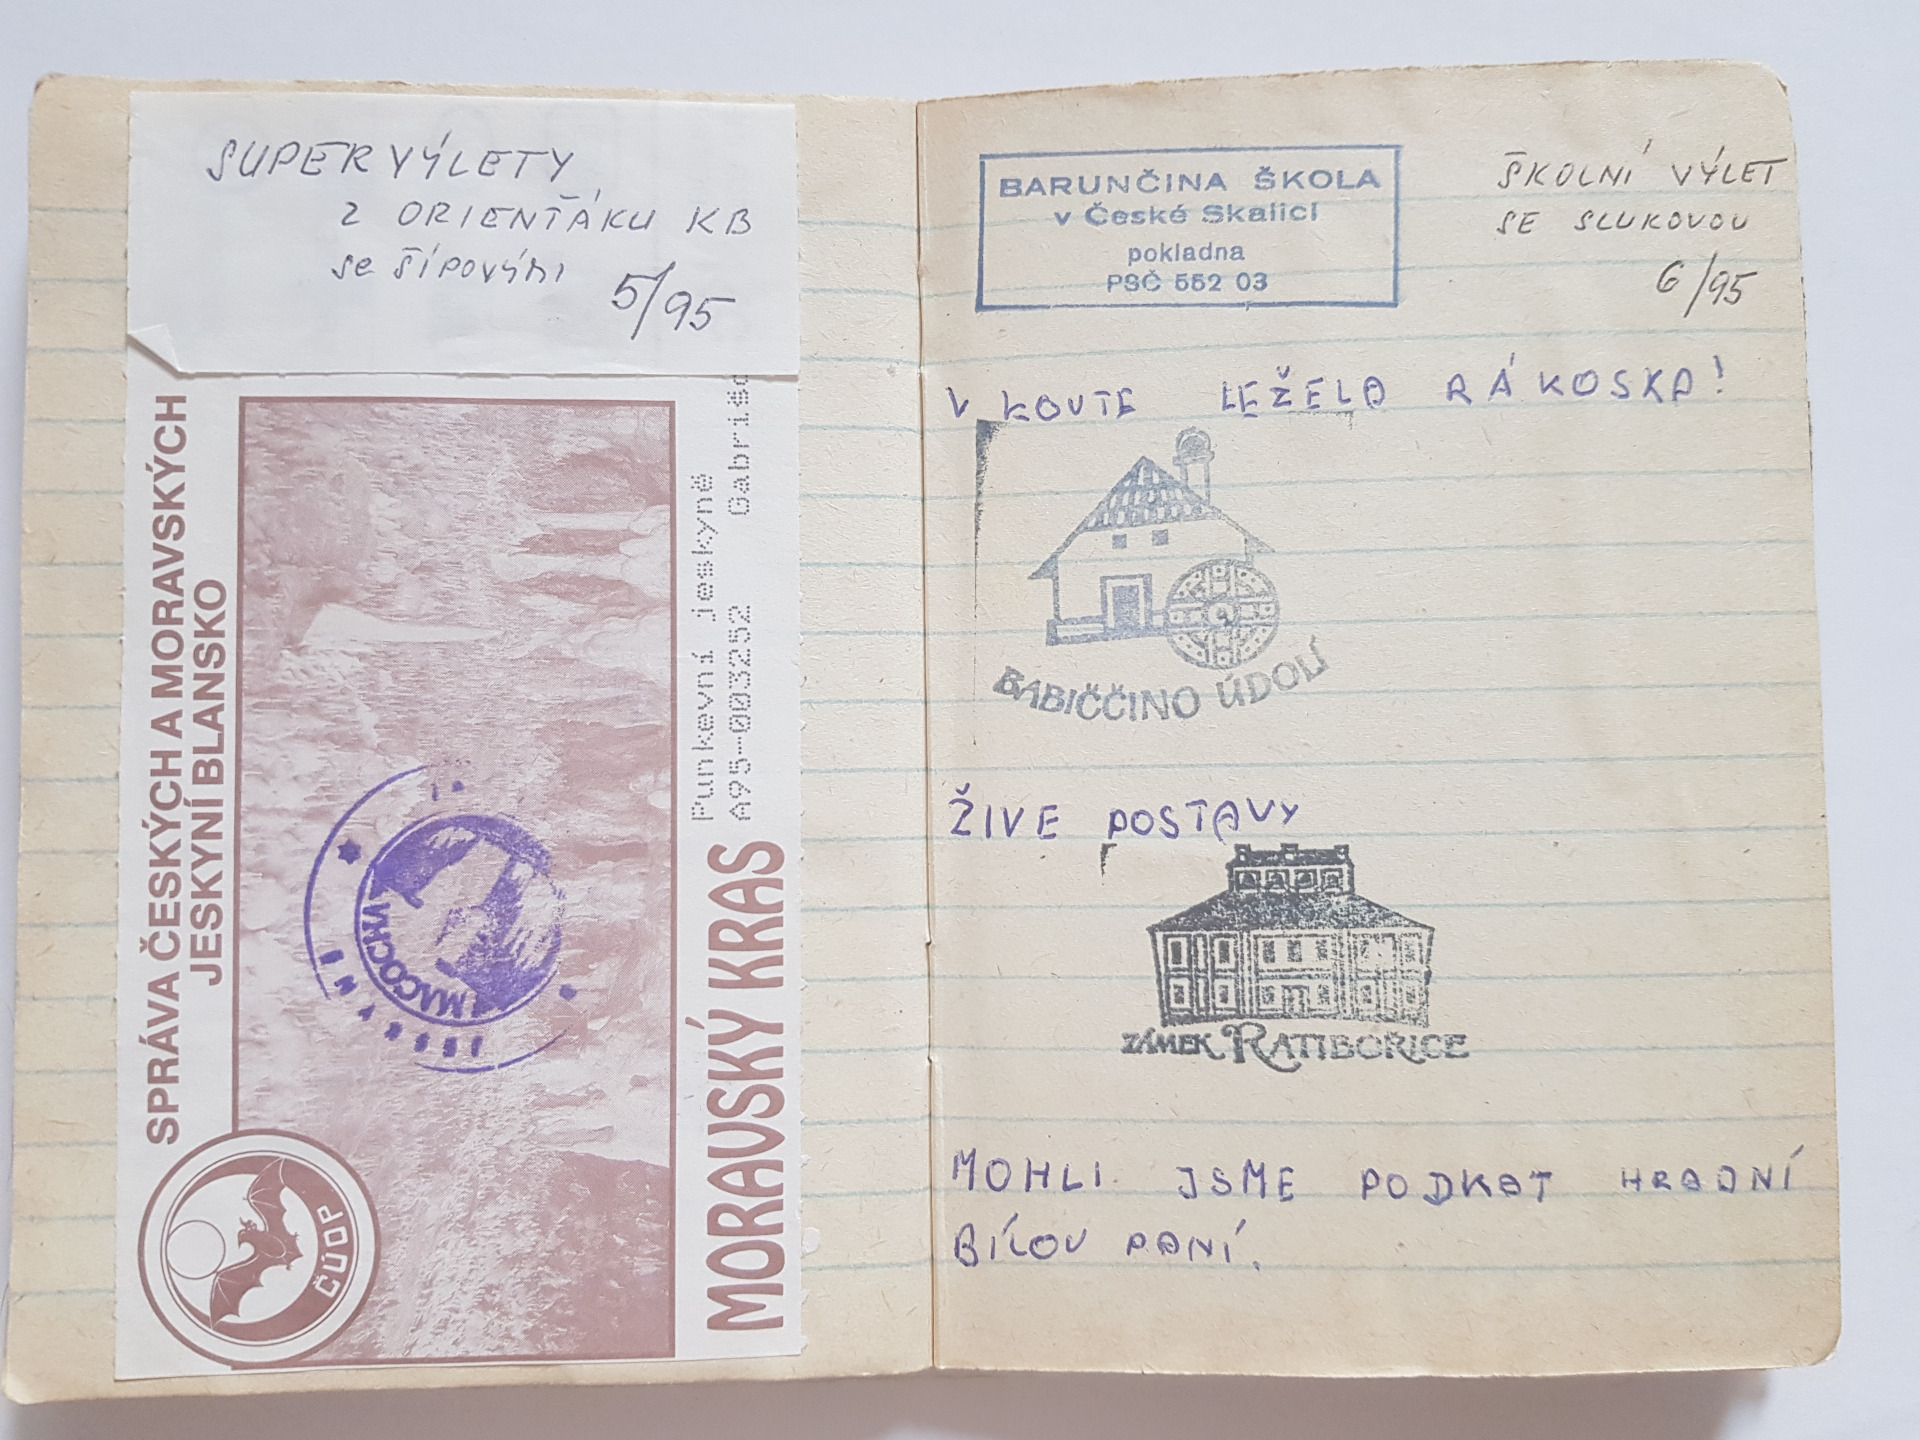 SUPERVÝLETY
Z ORIENŤÁKU KB
se ŠÍPOVÝMI
5/95
SPRÁVA ČESKÝCH A MORAVSKÝCH
JESKYNÍ BLANSKO
MACOCHA
ČÚOP
Punkevní jeskyně
A95-003252 Gabriš
MORAVSKÝ KRAS
BARUNČINA ŠKOLA
v České Skalici
pokladna
PSČ 552 03
ŠKOLNÍ VÝLET
SE SLUKOVOU
6/95
V KOUTE LEŽELA RÁKOSKA!
BABIČČINO ÚDOLÍ
ŽIVE POSTAVY
ZÁMEK RATIBOŘICE
MOHLI JSME PODKAT HRADNÍ
BÍLOU PANÍ.